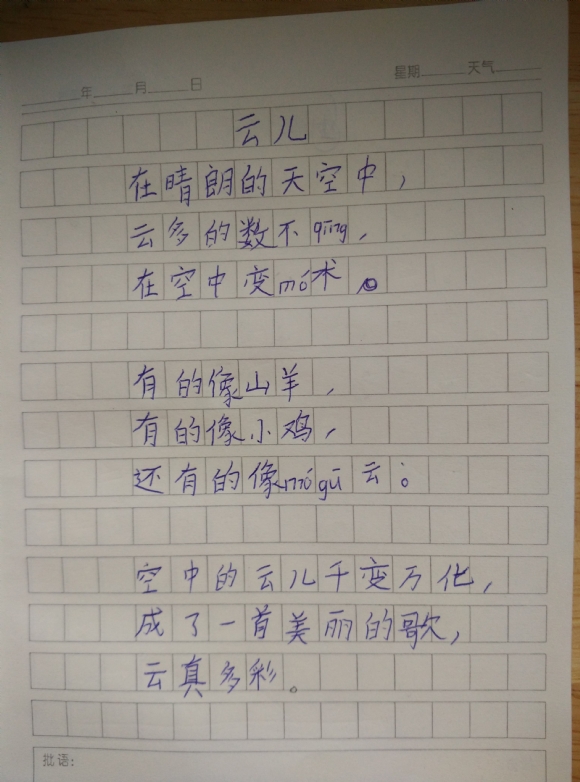 年 月 日 星期 天气
云儿
在晴朗的天空中，
云多的数不qīng，
在空中变mó术。
有的像山羊，
有的像小鸡，
还有的像mógū云。
空中的云儿千变万化，
成了一首美丽的歌，
云真多彩。
批语：